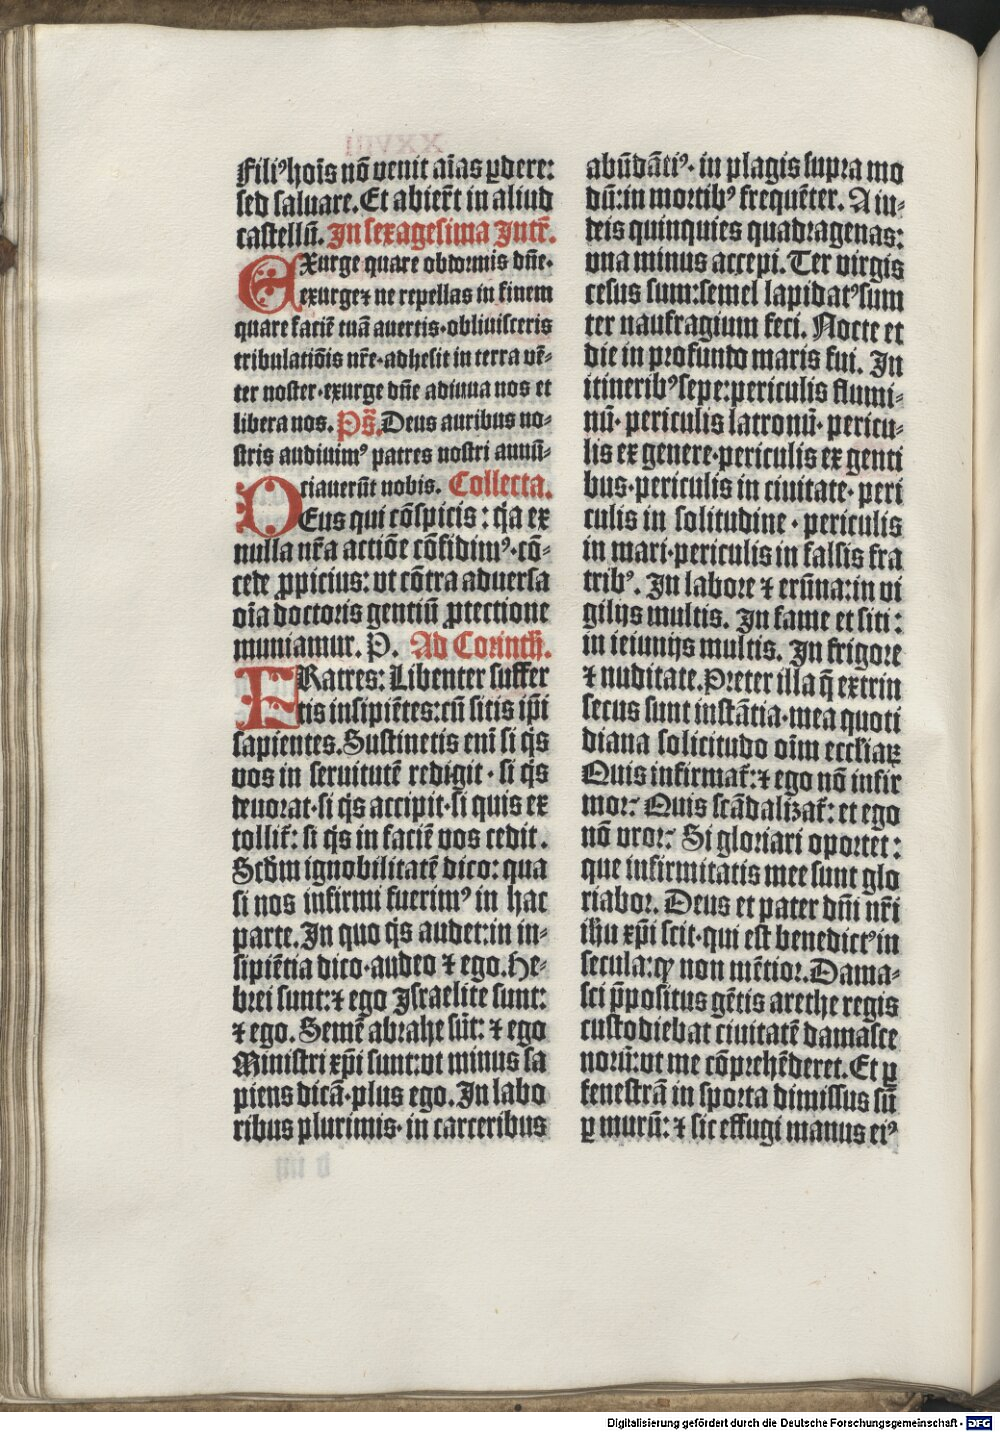 Filiꝰ hoı̄s nō venit aı̄as ꝑdere:
sed saluare. Et abier̄t in aliud
castellū. In sexagesima Intr̄.
EXurge quare obdormis dn̄e·
exurge ⁊ ne repellas in finem
quare faciē tuā auertis·obliuisceris
tribulatiōis nr̄e·adhesit in terra vē⸗
ter noster·exurge dn̄e adiuua nos et
libera nos. Ps̄. Deus auribus no⸗
stris audiuimꝰ patres nostri annū⸗
ciauerūt nobis. Collecta.
DEus qui cōspicis: q̄a ex
nulla nr̄a actiōe cōfidimꝰ·cō⸗
cede ꝓpicius: vt cōtra aduersa
oı̄a doctoris gentiū ꝓtectione
muniamur. P. Ad Corinth̄.
FRatres: Libenter suffer
tis insipiētes:cū sitis ip̄i
sapientes. Sustinetis enı̄ si q̄s
vos in seruitutē redigit · si q̄s
deuorat·si q̄s accipit·si quis ex
tollit̄: si q̄s in faciē vos cedit.
Scd̄m ignobilitatē dico: qua
si nos infirmi fuerimꝰ in hac
parte. In quo q̄s audet:in in⸗
sipiētia dico·audeo ⁊ ego. He⸗
brei sunt:⁊ ego Israelite sunt:
⁊ ego. Semē abrahe sūt: ⁊ ego
Ministri xp̄i sunt:vt minus sa
piens dicā·plus ego. In labo
ribus plurimis· in carceribus
abūdātiꝰ· in plagis supra mo
dū:in mortibꝰ frequēter. A iu⸗
deis quinquies quadragenas:
vna minus accepi. Ter virgis
cesus sum:semel lapidatꝰ sum
ter naufragium feci. Nocte et
die in profundo maris fui. In
itineribꝰ sepe:periculis flumi⸗
nū· periculis latronū· pericu⸗
lis ex genere·periculis ex genti
bus·periculis in ciuitate· peri
culis in solitudine · periculis
in mari·periculis in falsis fra
tribꝰ. In labore ⁊ erūna:in vi
gilijs multis. In fame et siti:
in ieiunijs multis. In frigore
⁊ nuditate. Preter illa q̄ extrin
secus sunt instātia·mea quoti
diana solicitudo oı̄m eccl̄iaꝝ
Quis infirmat̄:⁊ ego nō infir
mor: Quis scādalizat̄: et ego
nō vror: Si gloriari oportet:
que infirmitatis mee sunt glo
riabor. Deus et pater dn̄i nr̄i
ih̄u xp̄i scit·qui est benedictꝰ in
secula:ꝙ non mētior. Dama⸗
sci p̄positus gētis arethe regis
custodiebat ciuitatē damasce
norū:vt me cōprehēderet. Et ꝑ
fenestrā in sporta dimissus sū
ꝑ murū: ⁊ sic effugi manus eiꝰ
Digitalisierung gefördert durch die Deutsche Forschungsgemeinschaft · DFG